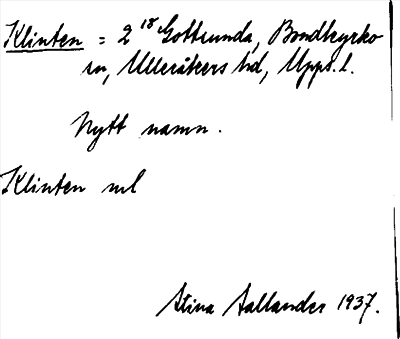 Klinten = 2 18 Gottsunda, Bondkyrko
sn, Ulleråkers hd, Upps. l.
Nytt namn.
Klinten ml
Stina Sallander 1937.